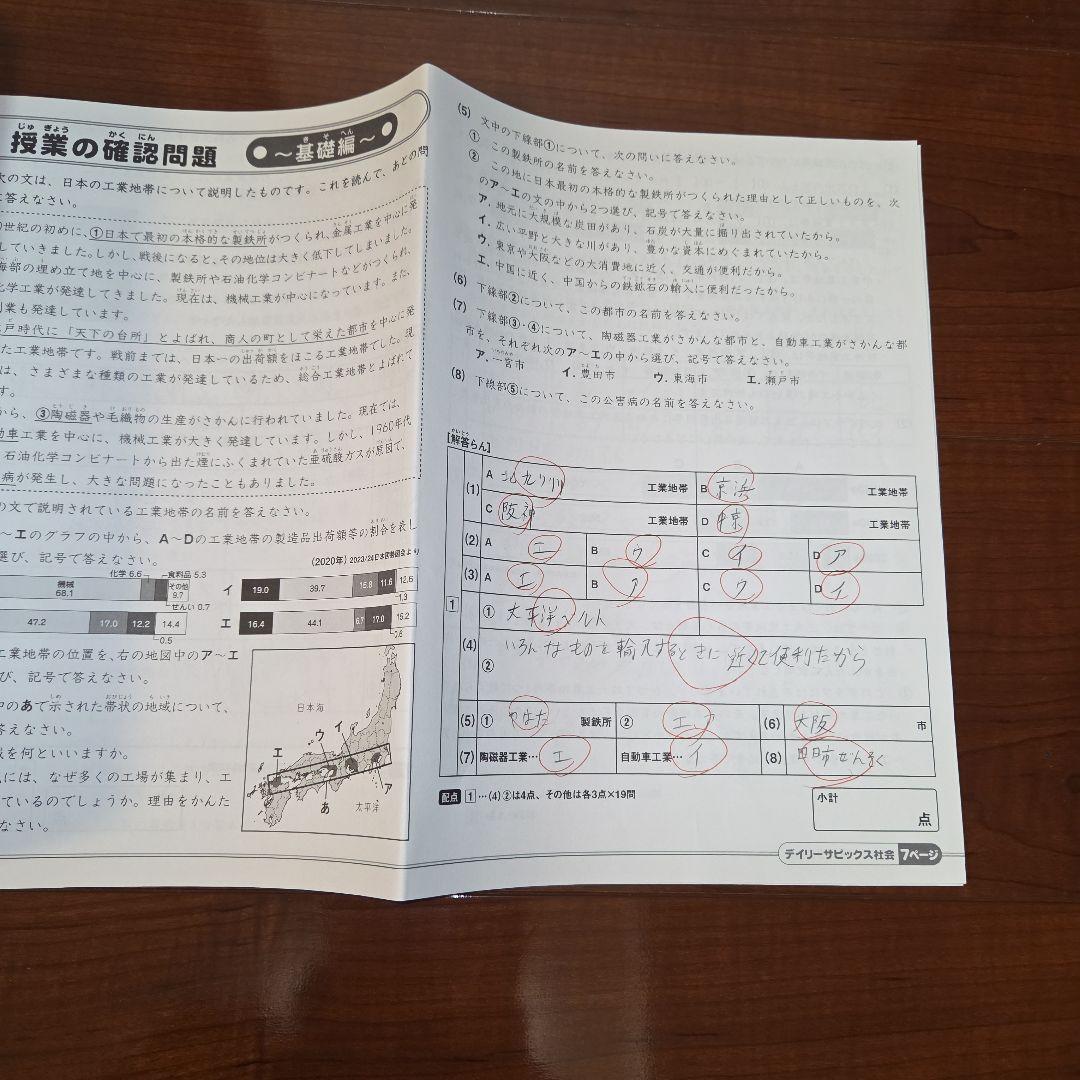 授業の確認問題
じゅ ぎょう かく にん
～基礎編～
き そ へん
次の文は、日本の工業地帯について説明したものです。これを読んで、あとの問
に答えなさい。
世紀の初めに、①日本で最初の本格的な製鉄所がつくられ、金属工業を中心に発
していきました。しかし、戦後になると、その地位は大きく低下してしまいました。
海部の埋め立て地を中心に、製鉄所や石油化学コンビナートなどがつくられ、
化学工業が発達してきました。現在は、機械工業が中心になっています。また、
業も発達しています。
戸時代に「天下の台所」とよばれ、商人の町として栄えた都市を中心に発
た工業地帯です。戦前までは、日本一の出荷額をほこる工業地帯でした。現
は、さまざまな種類の工業が発達しているため、総合工業地帯とよばれて
す。
から、③陶磁器や毛織物の生産がさかんに行われていました。現在では、
動車工業を中心に、機械工業が大きく発達しています。しかし、1960年代
石油化学コンビナートから出た煙にふくまれていた亜硫酸ガスが原因で、
病が発生し、大きな問題になったこともありました。
の文で説明されている工業地帯の名前を答えなさい。
～エのグラフの中から、A～Dの工業地帯の製造品出荷額等の割合を表し
選び、記号で答えなさい。
(2020年) 2023/24日本国勢図会より
化学 6.6 食料品 5.3
機械 68.1 その他 9.7
せんい 0.7
イ 19.0 39.7 16.8 11.6 12.6
1.3
47.2 17.0 12.2 14.4
0.5
エ 16.4 44.1 6.7 17.0 15.2
0.6
工業地帯の位置を、右の地図中のア～エ
び、記号で答えなさい。
中のあで示された帯状の地域について、
答えなさい。
域を何といいますか。
には、なぜ多くの工場が集まり、工
ているのでしょうか。理由をかんた
なさい。
日本海
イ
ウ
エ
ア
あ
太平洋
(5) 文中の下線部①について、次の問いに答えなさい。
① この製鉄所の名前を答えなさい。
② この地に日本最初の本格的な製鉄所がつくられた理由として正しいものを、次
のア～エの文の中から2つ選び、記号で答えなさい。
ア. 地元に大規模な炭田があり、石炭が大量に掘り出されていたから。
イ. 広い平野と大きな川があり、豊かな資本にめぐまれていたから。
ウ. 東京や大阪などの大消費地に近く、交通が便利だから。
エ. 中国に近く、中国からの鉄鉱石の輸入に便利だったから。
(6) 下線部②について、この都市の名前を答えなさい。
(7) 下線部③・④について、陶磁器工業がさかんな都市と、自動車工業がさかんな都
市を、それぞれ次のア～エの中から選び、記号で答えなさい。
ア. 一宮市 イ. 豊田市 ウ. 東海市 エ. 瀬戸市
(8) 下線部⑤について、この公害病の名前を答えなさい。
[解答らん]
1
(1) A 北九州 工業地帯 B 京浜 工業地帯
C 阪神 工業地帯 D 中京 工業地帯
(2) A エ B ウ C イ D ア
(3) A エ B ア C ウ D イ
(4) ① 太平洋ベルト
② いろんなものを輸入するときに近くて便利だから
(5) ① やはた 製鉄所 ② エ、ア (6) 大阪 市
(7) 陶磁器工業… エ 自動車工業… イ (8) 四日市ぜんそく
配点 1 …(4)②は4点、その他は各3点×19問
小計
点
デイリーサピックス社会 7ページ